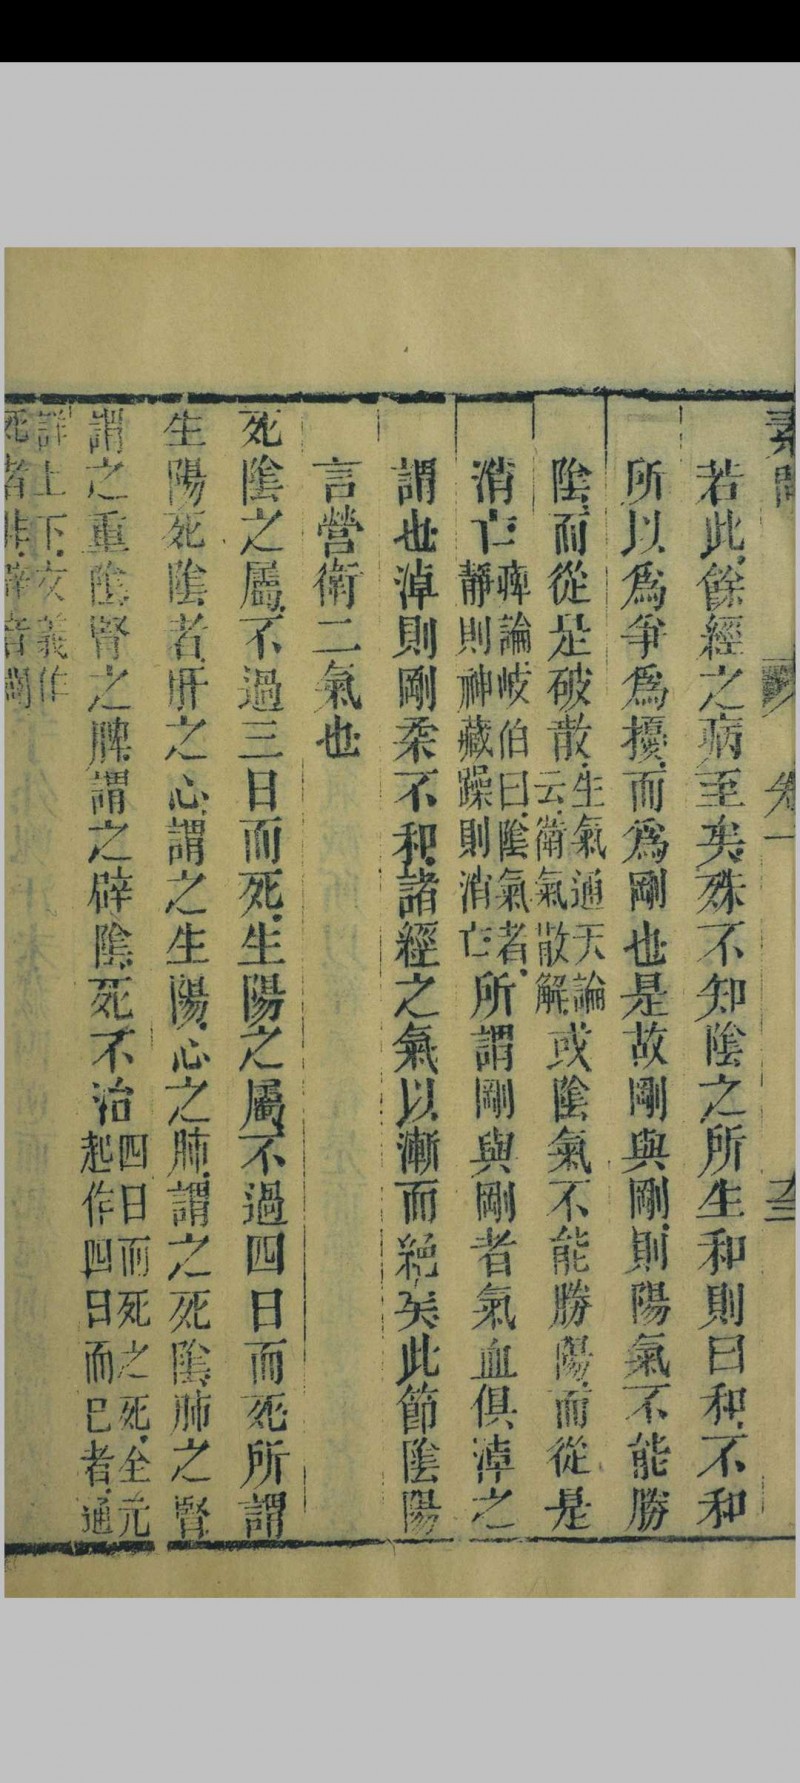 素問
卷一
若此餘經之病至矣殊不知陰之所生和則曰和不和
所以爲爭爲擾而爲剛也是故剛與剛則陽氣不能勝
陰而從是破散生氣通天論云衛氣散解或陰氣不能勝陽而從是
消亡痺論岐伯曰陰氣者靜則神藏躁則消亡所謂剛與剛者氣血俱淖之
謂也淖則剛柔不和諸經之氣以漸而絕矣此節陰陽
言營衛二氣也
死陰之屬不過三日而死生陽之屬不過四日而死所謂
生陽死陰者肝之心謂之生陽心之肺謂之死陰肺之腎
謂之重陰腎之脾謂之辟陰死不治四日而死之死全元起作四日而已者通
詳上下文義作
死者非辟音闢